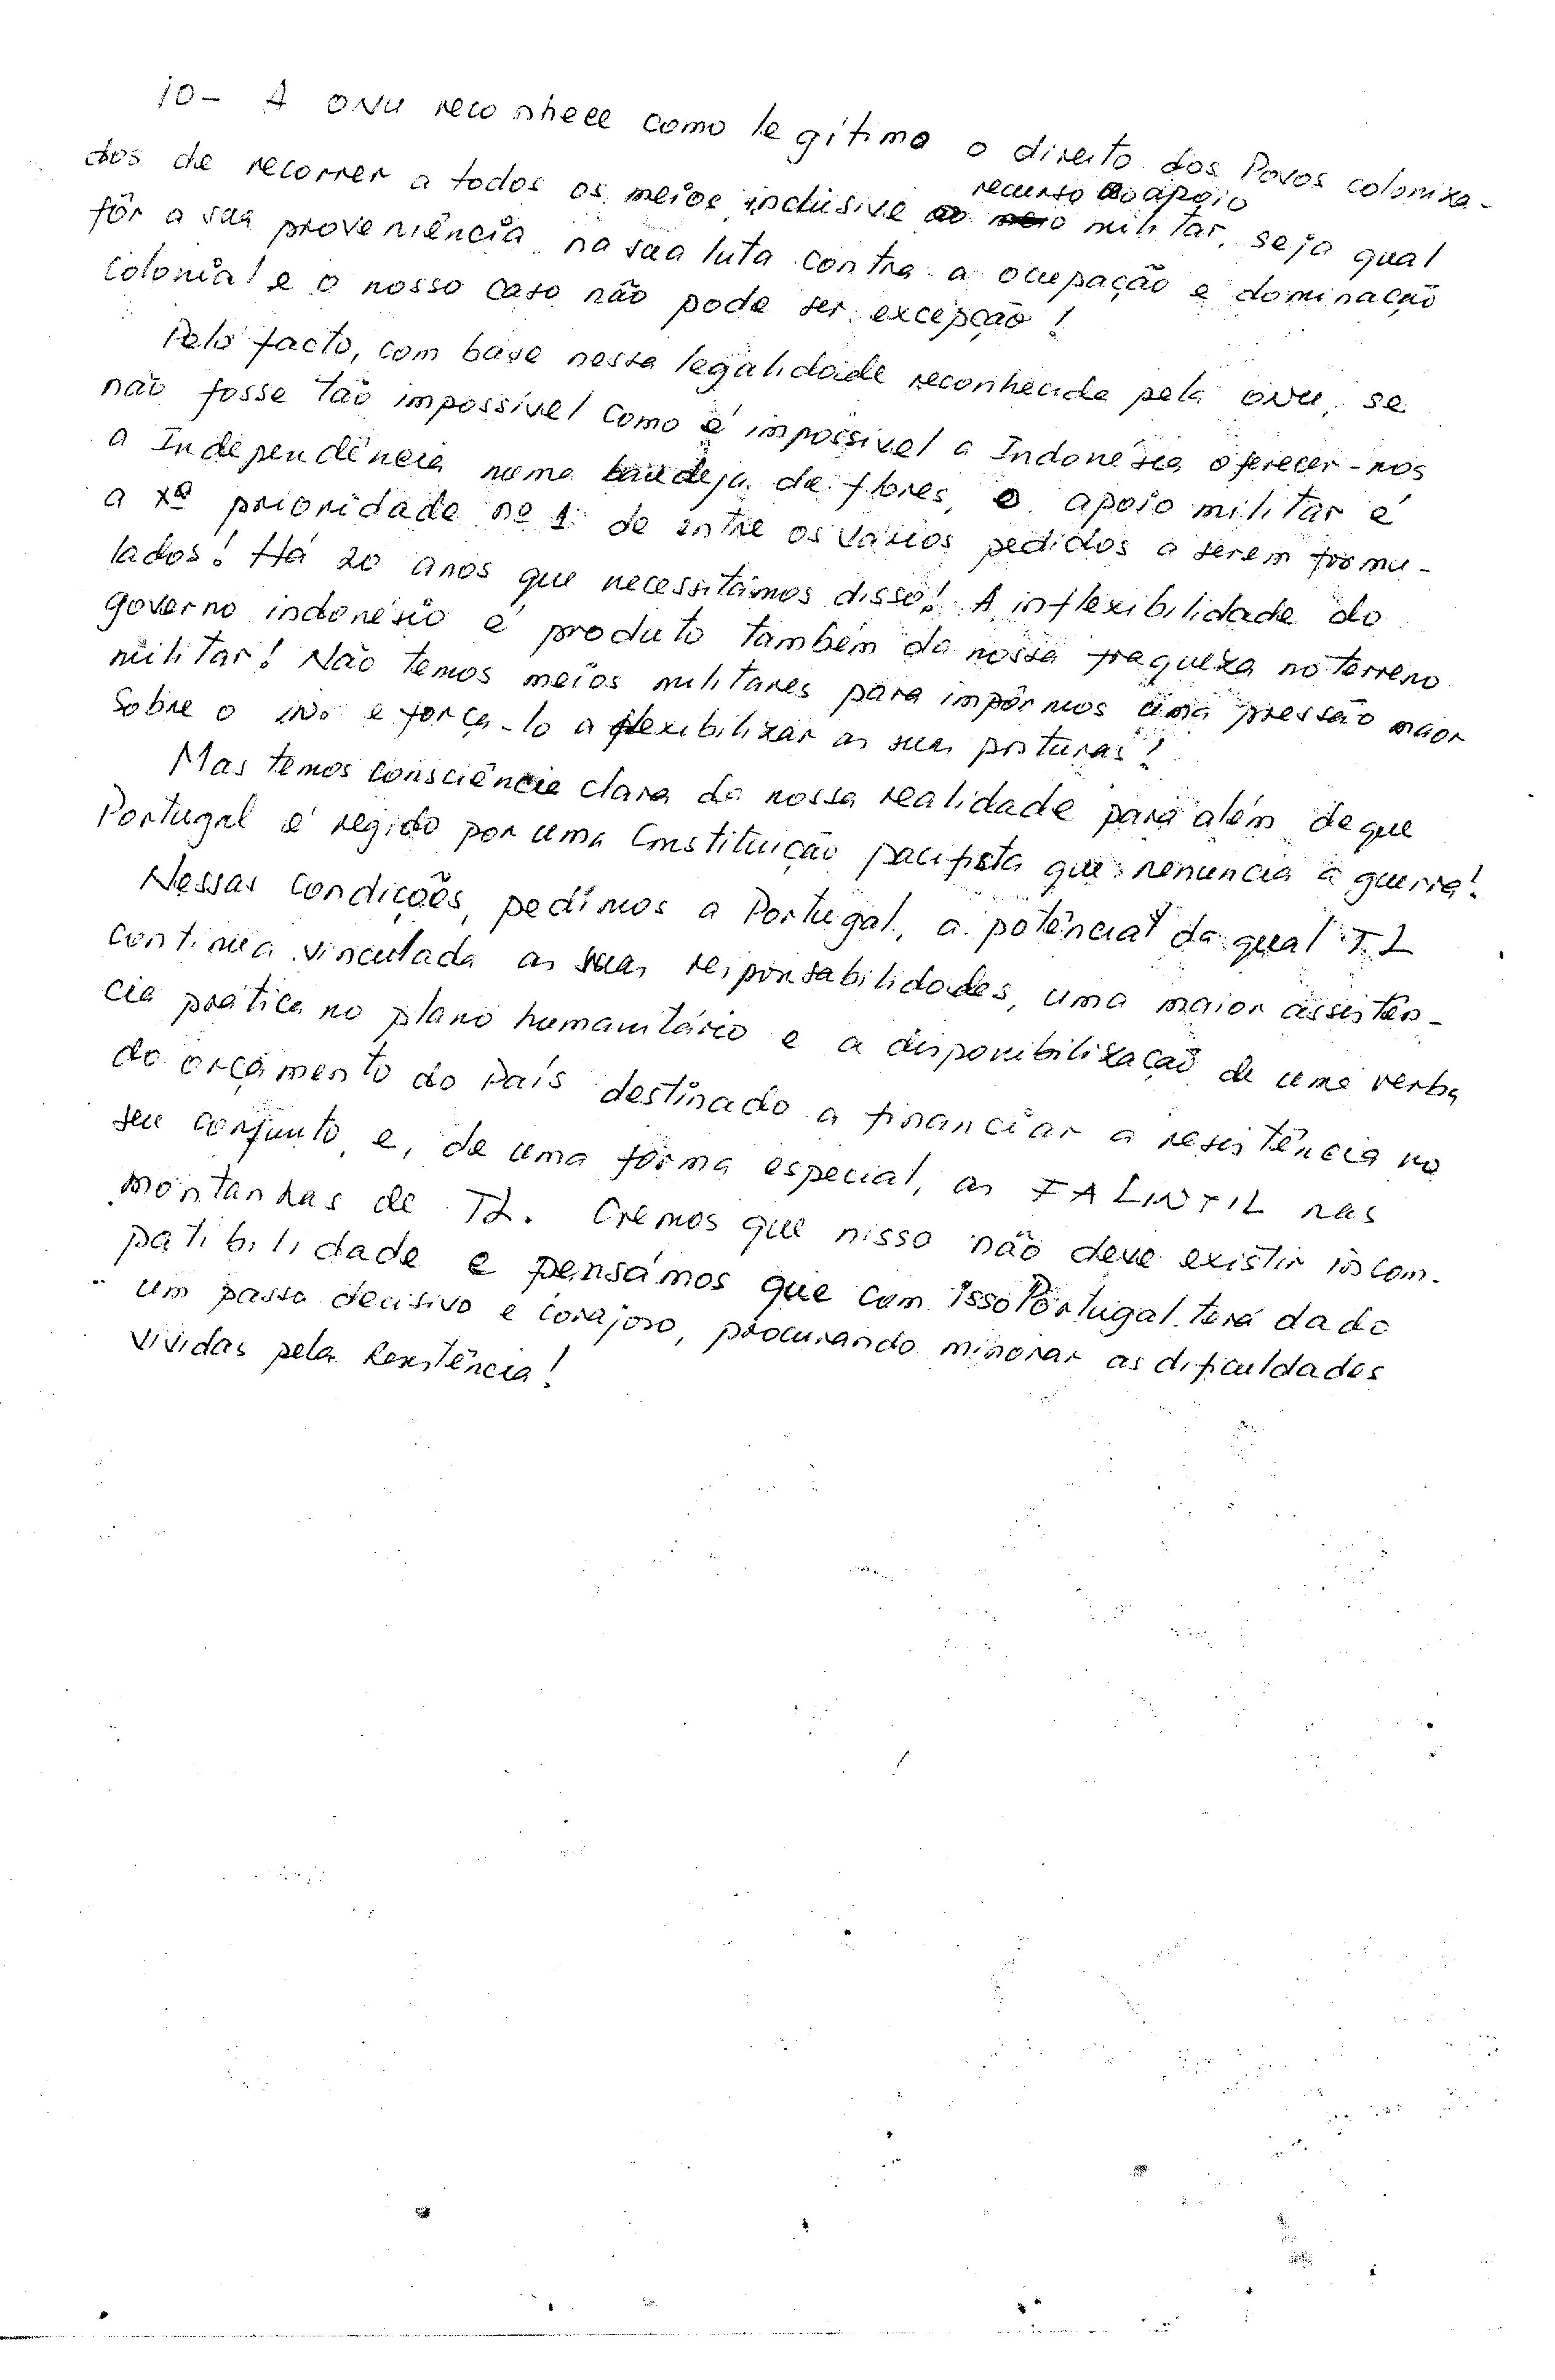 10- A ONU reconhece como legítimo o direito dos Povos coloniza-
dos de recorrer a todos os meios, inclusive ao recurso ao apoio militar, seja qual
fôr a sua proveniência, na sua luta contra a ocupação e dominação
colonial e o nosso caso não pode ser excepção!
Pelo facto, com base nessa legalidade reconhecida pela ONU, se
não fosse tão impossível como é impossível a Indonésia oferecer-nos
a Independência numa bandeja de flores, o apoio militar é
a xª prioridade nº 1 de entre os vários pedidos a serem formu-
lados! Há 20 anos que necessitámos disso! A inflexibilidade do
governo indonésio é produto também da nossa fraqueza no terreno
militar! Não temos meios militares para impôrmos uma pressão maior
sobre o in. e força-lo a flexibilizar as suas posturas!
Mas temos consciência clara da nossa realidade para além de que
Portugal é regido por uma Constituição pacifista que renuncia a guerra!
Nessas condições, pedímos a Portugal, a potência da qual T.L
continua vinculada as suas responsabilidades, uma maior assistên-
cia prática no plano humanitário e a disponibilização de uma verba
do orçamento do País destinado a financiar a resistência no
seu conjunto e, de uma forma especial, as FALINTIL nas
montanhas de TL. Cremos que nisso não deve existir incom-
patibilidade e pensámos que com isso Portugal terá dado
um passo decisivo e corajoso, procurando minorar as dificuldades
vividas pela Resistência!